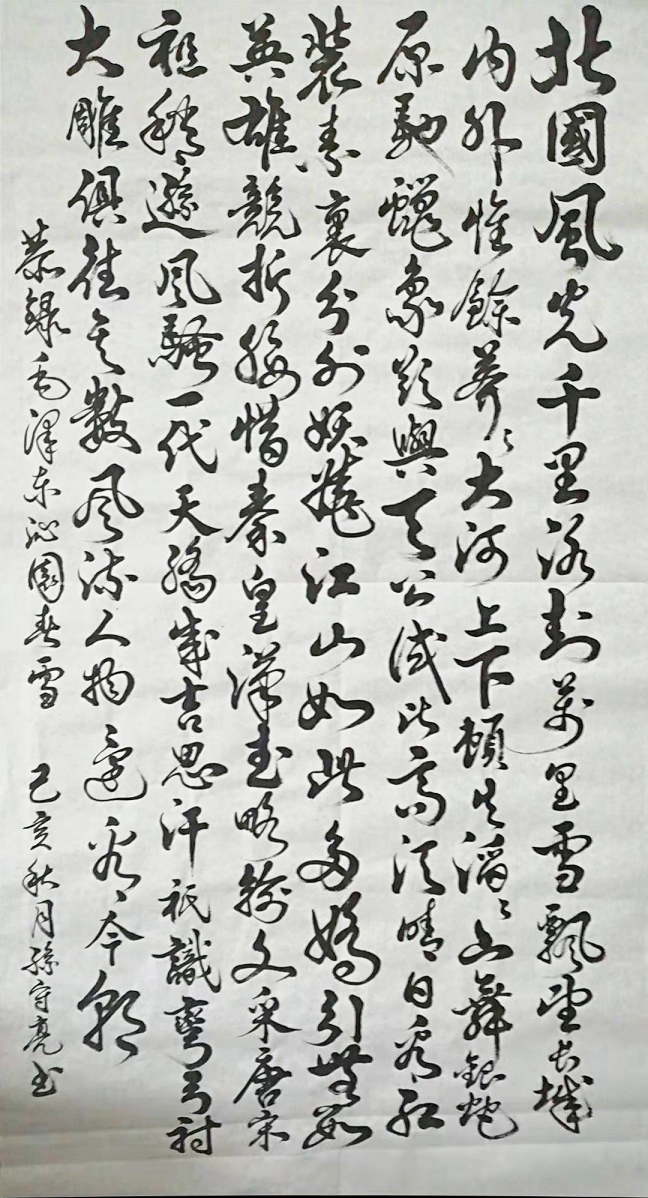 北國風光千里冰封萬里雪飄望長城
内外惟餘莽々大河上下頓失滔々山舞銀蛇
原馳蠟象欲與天公試比高須晴日看紅
裝素裹分外妖嬈江山如此多嬌引無數
英雄競折腰惜秦皇漢武略輸文采唐宗
祖稍遜風騷一代天驕成吉思汗祇識彎弓射
大雕俱往矣數風流人物還看今朝
恭録毛澤东沁園春雪 己亥秋月孫守亮书